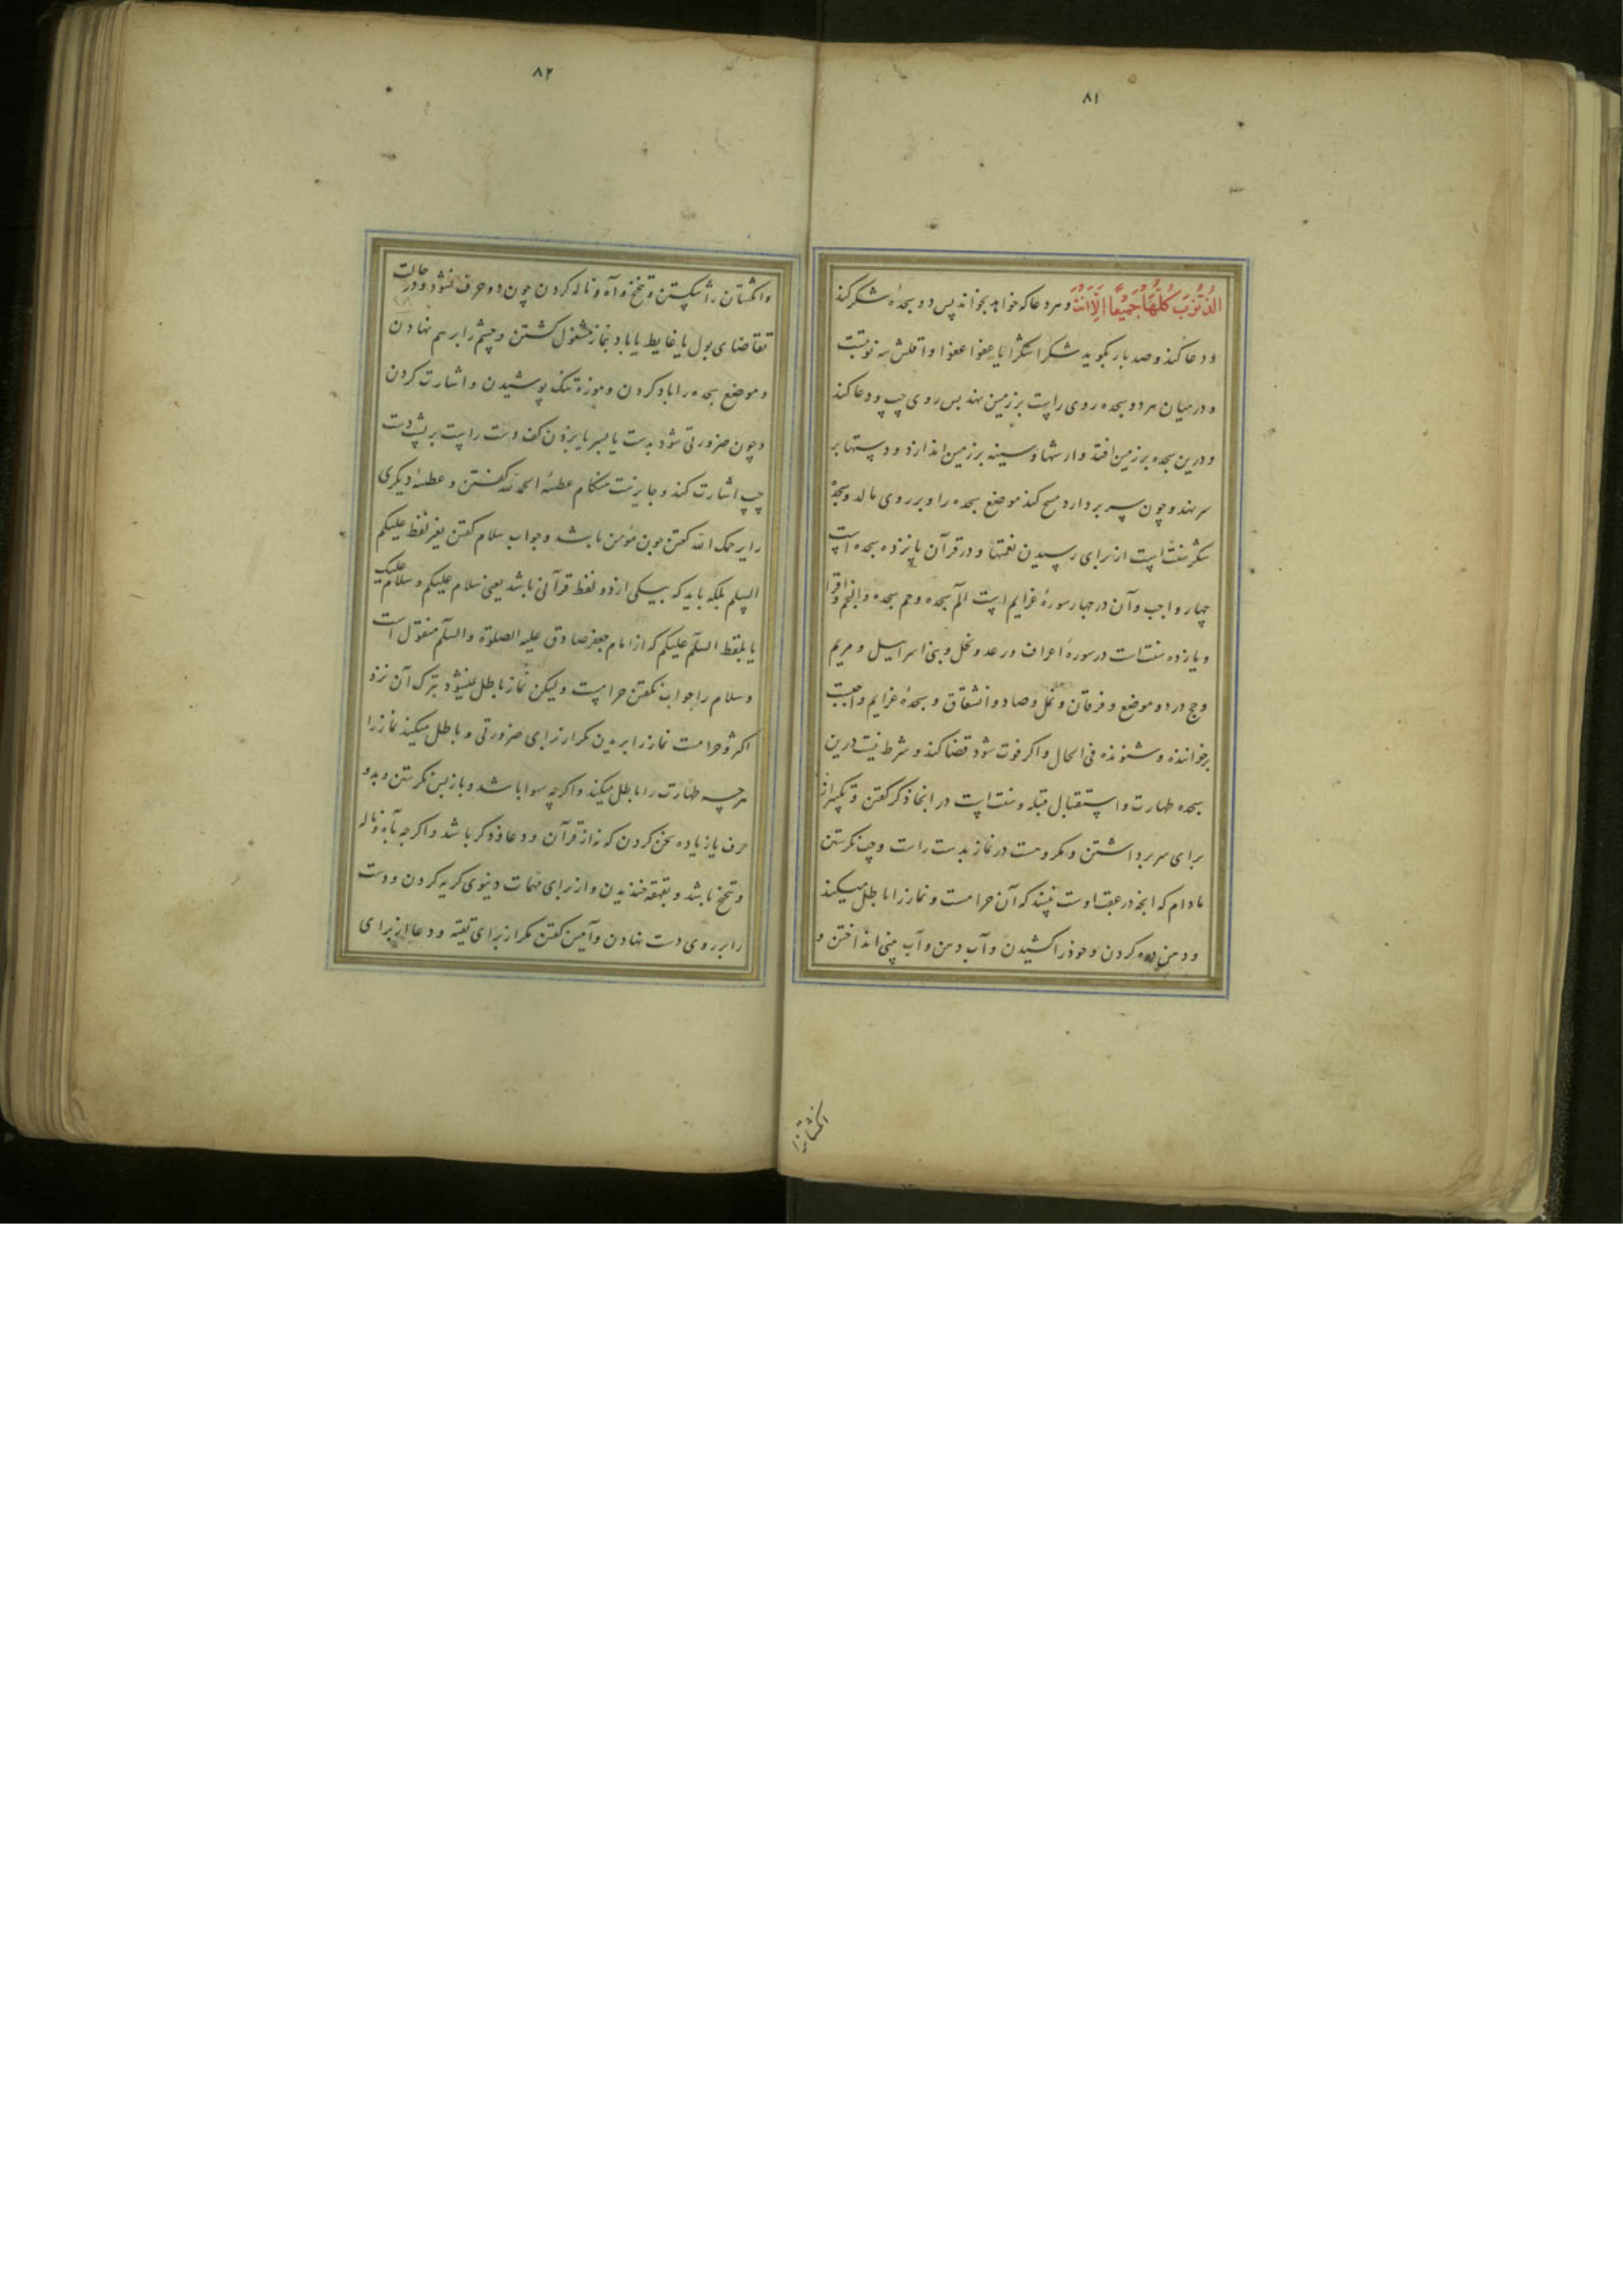 ۸۱
الذُّنُوبَ كُلَّهَا جَمِيعًا اِلَّا اَنْتَ و هر دعا که خواهد بخواند پس دو سجدهٔ شکر کند
و دعا کند و صد بار بگوید شکرا شکرا یا عفوا عفوا و اقلش سه نوبتست
و در میان هر دو سجده روی راست بر زمین نهد پس روی چپ و دعا کند
و درین سجده بر زمین افتد و ارشها و سینه بر زمین اندازد و دستها بر
سر نهد و چون سر بردارد مسح کند موضع سجده را و بر روی مالد و سجدهٔ
شکر سنتست از برای رسیدن نعمتها و در قرآن پانزده سجده است
چهار واجب و آن در چهار سورهٔ عزایم است الم سجده و حم سجده و النجم و اقرا
و یازده سنتست در سورهٔ اعراف و رعد و نحل و بنی اسراییل و مریم
و حج در دو موضع و فرقان و نمل و صاد و انشقاق و سجدهٔ عزایم واجبست
بر خواننده و شنونده فی الحال و اکر فوت شود قضا کند و شرط نیست درین
سجده طهارت و استقبال قبله و سنت است در اینجا ذکر کفتن و تکبیر از
برای سر برداشتن و مکروهست در نماز بدست راست و چپ نکرستن
مادام که انچه در عقب اوست نبیند که آن حرامست و نماز را باطل میکند
و دهن دره کردن و خود را کشیدن و آب دهن و آب بینی انداختن و
انکشتانرا
۸۲
و انکشتان را شکستن و تنخنخ و آه و ناله کردن چون دو حرف نشود و در حالت
تقاضای بول یا غایط یا باد بنماز مشغول کشتن و چشم را بر هم نهادن
و موضع سجده را باد کردن و موزهٔ تنک پوشیدن و اشارت کردن
و چون ضرورتی شود بدست یا بسر یا بزدن کف دست راست بر پشت دست
چپ اشارت کند و جایزست هنکام عطسهٔ الحمد لله کفتن و عطسهٔ دیکری
را یرحمک الله کفتن چون مؤمن باشد و جواب سلام کفتن بغیر لفظ علیکم
السلم بلکه باید که بیکی از دو لفظ قرآنی باشد یعنی سلام علیکم و سلام علیک
یا بلفظ السلم علیکم که از امام جعفر صادق علیه الصلوة و السلم منقول است
و سلام را جواب نکفتن حرامست ولیکن نماز باطل نمیشود بترک آن نزد
اکثر و حرامست نماز را بریدن مکر از برای ضرورتی و باطل میکند نماز را
هرچه طهارت را باطل میکند و اکرچه سهوا باشد و باز پس نکرستن و بدو
حرف یا زیاده سخن کردن که نه از قرآن و دعا و ذکر باشد و اکرچه بآه و ناله
و تنخنخ باشد و بقهقهه خندیدن و از برای مهمات دنیوی کریه کردن و دست
را بر روی دست نهادن و آمین کفتن مکر از برای تقیه و دعا از برای